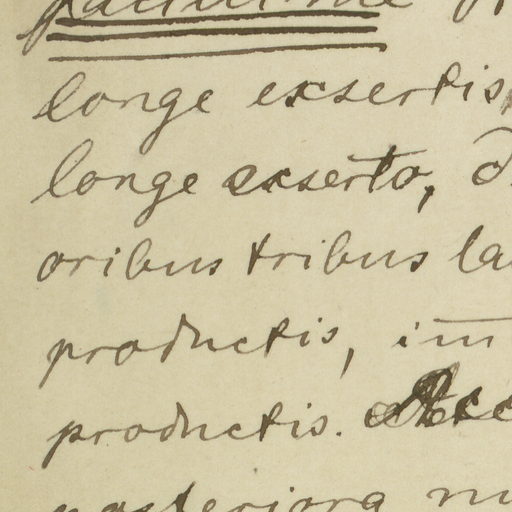 longe exsertis
longe exserto,
oribus tribus la
productis, im
productis.
posteriora